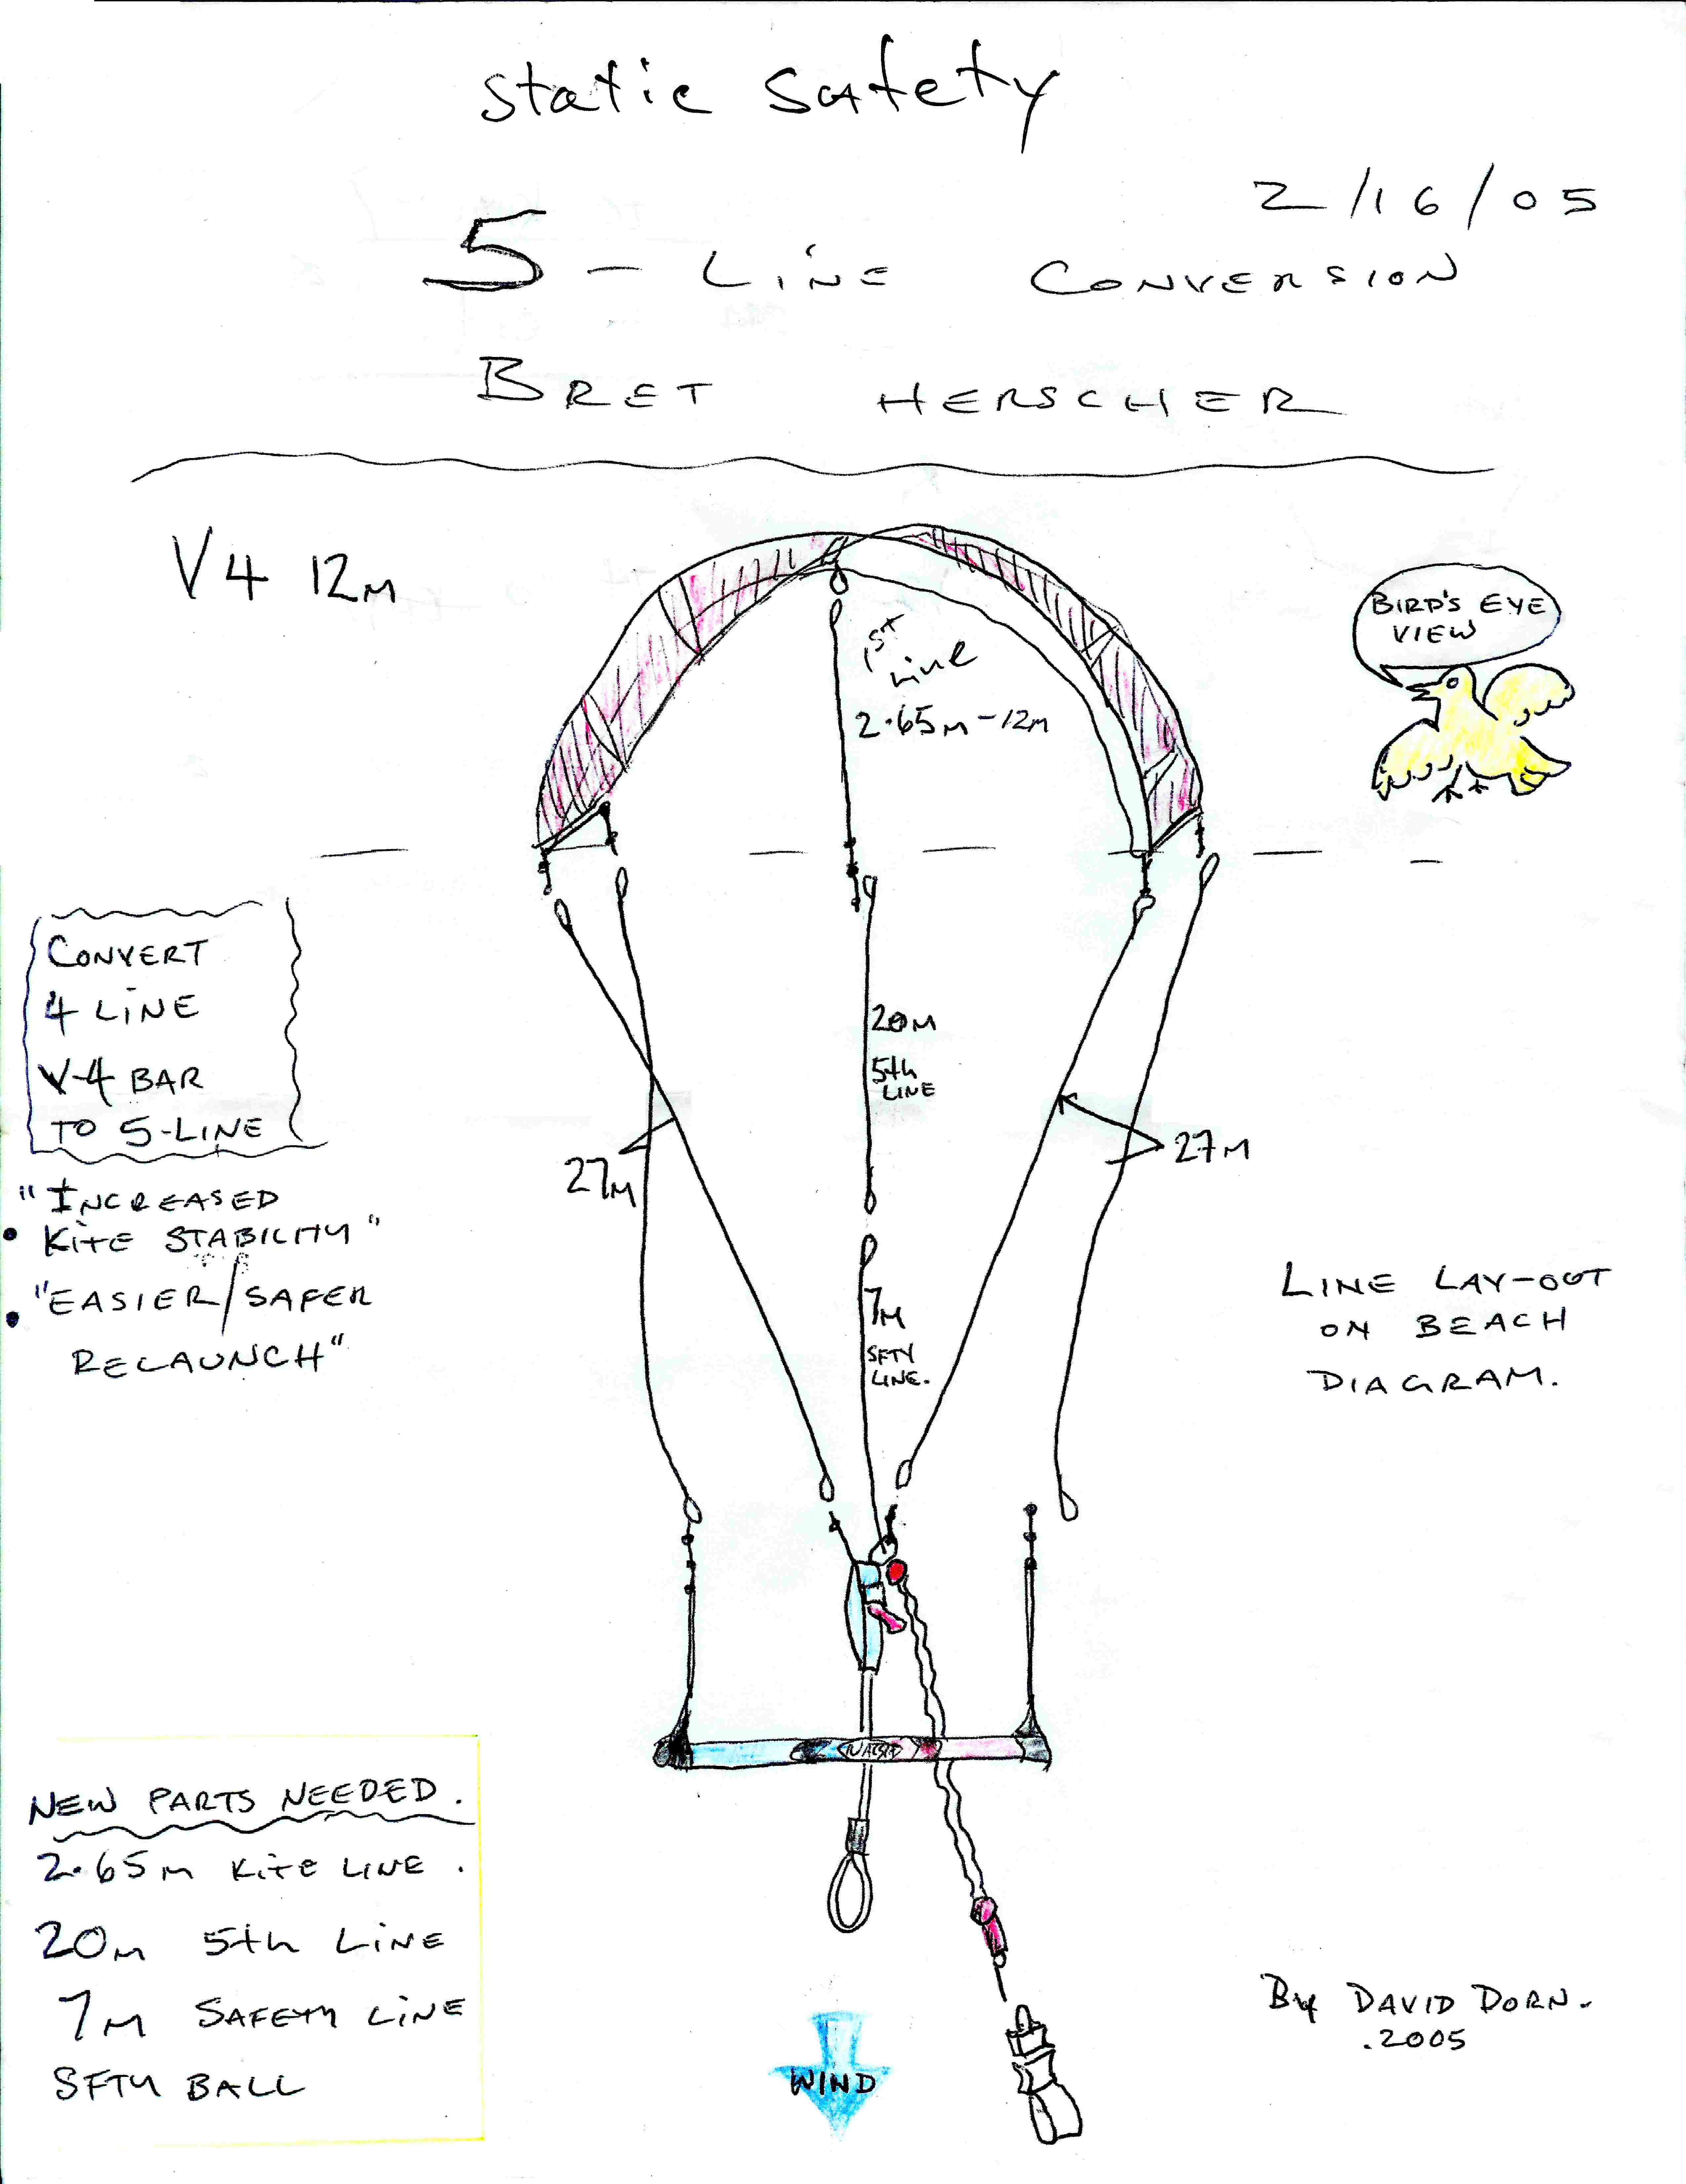 static safety
2/16/05
5 - LINE CONVERSION
BRET HERSCHER
V4 12M
BIRD'S EYE
VIEW
1st
Line
2.65M - 12M
CONVERT
4 LINE
V4 BAR
TO 5-LINE
"INCREASED
• KITE STABILITY"
• "EASIER/SAFER
RELAUNCH"
20M
5th
LINE
27M
27M
7M
SFTY
LINE.
LINE LAY-OUT
ON BEACH
DIAGRAM.
NAISH
NEW PARTS NEEDED.
2.65M KITE LINE.
20M 5th LINE
7M SAFETY LINE
SFTY BALL
WIND
By DAVID DORN.
.2005